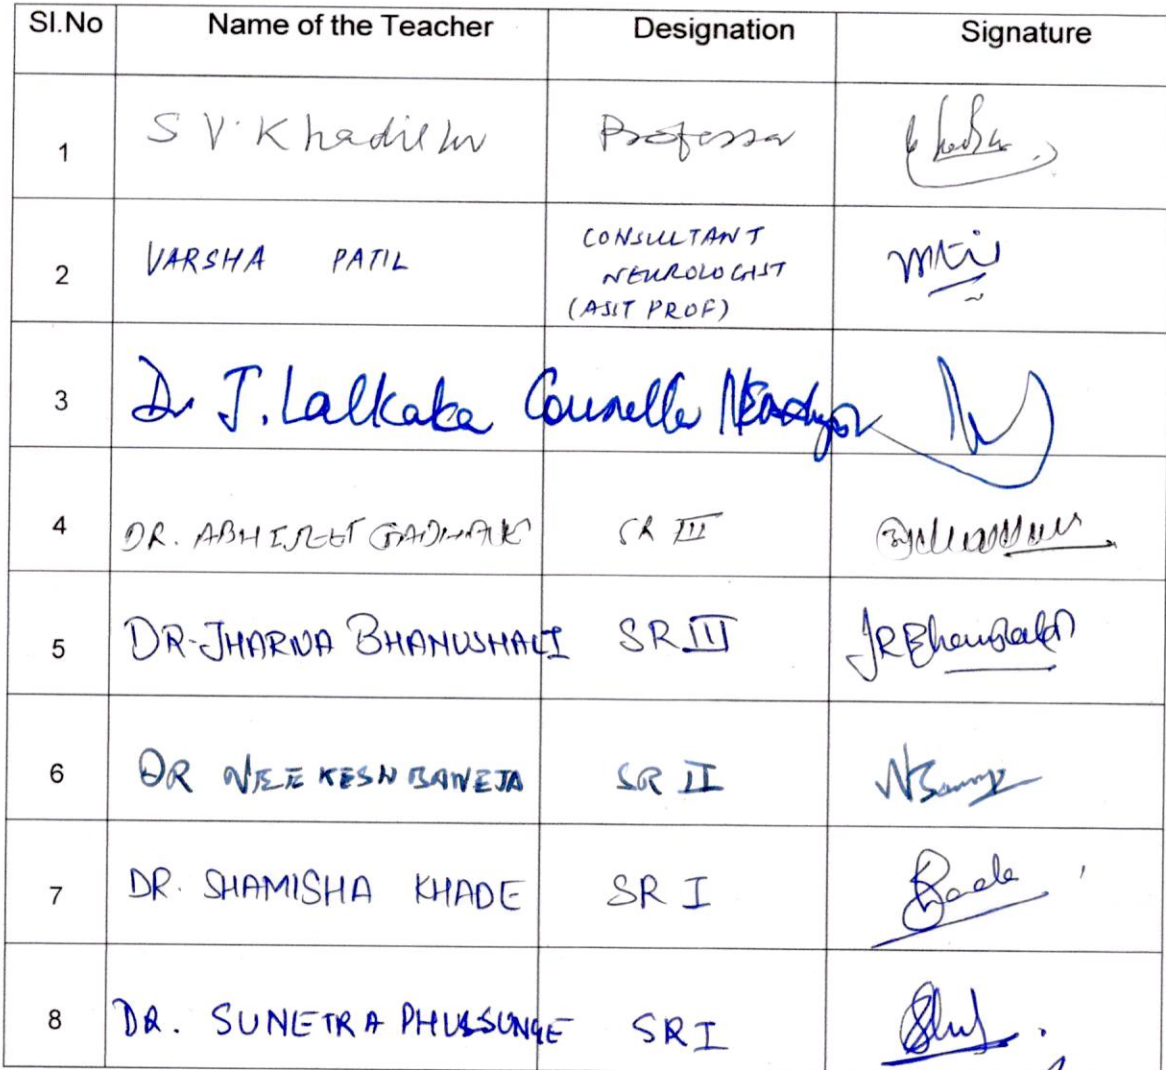 Sl.No Name of the Teacher Designation Signature
1 S V. Khadilkar Professor
2 VARSHA PATIL CONSULTANT
NEUROLOGIST
(ASST PROF)
3 Dr J. Lalkaka
4 DR. ABHIJEET SR III
5 DR. JHARNA BHANUSHALI SR III JRBhanushali
6 DR NEEKESH BANEJA SR II
7 DR. SHAMISHA KHADE SR I
8 DR. SUNETRA SR I